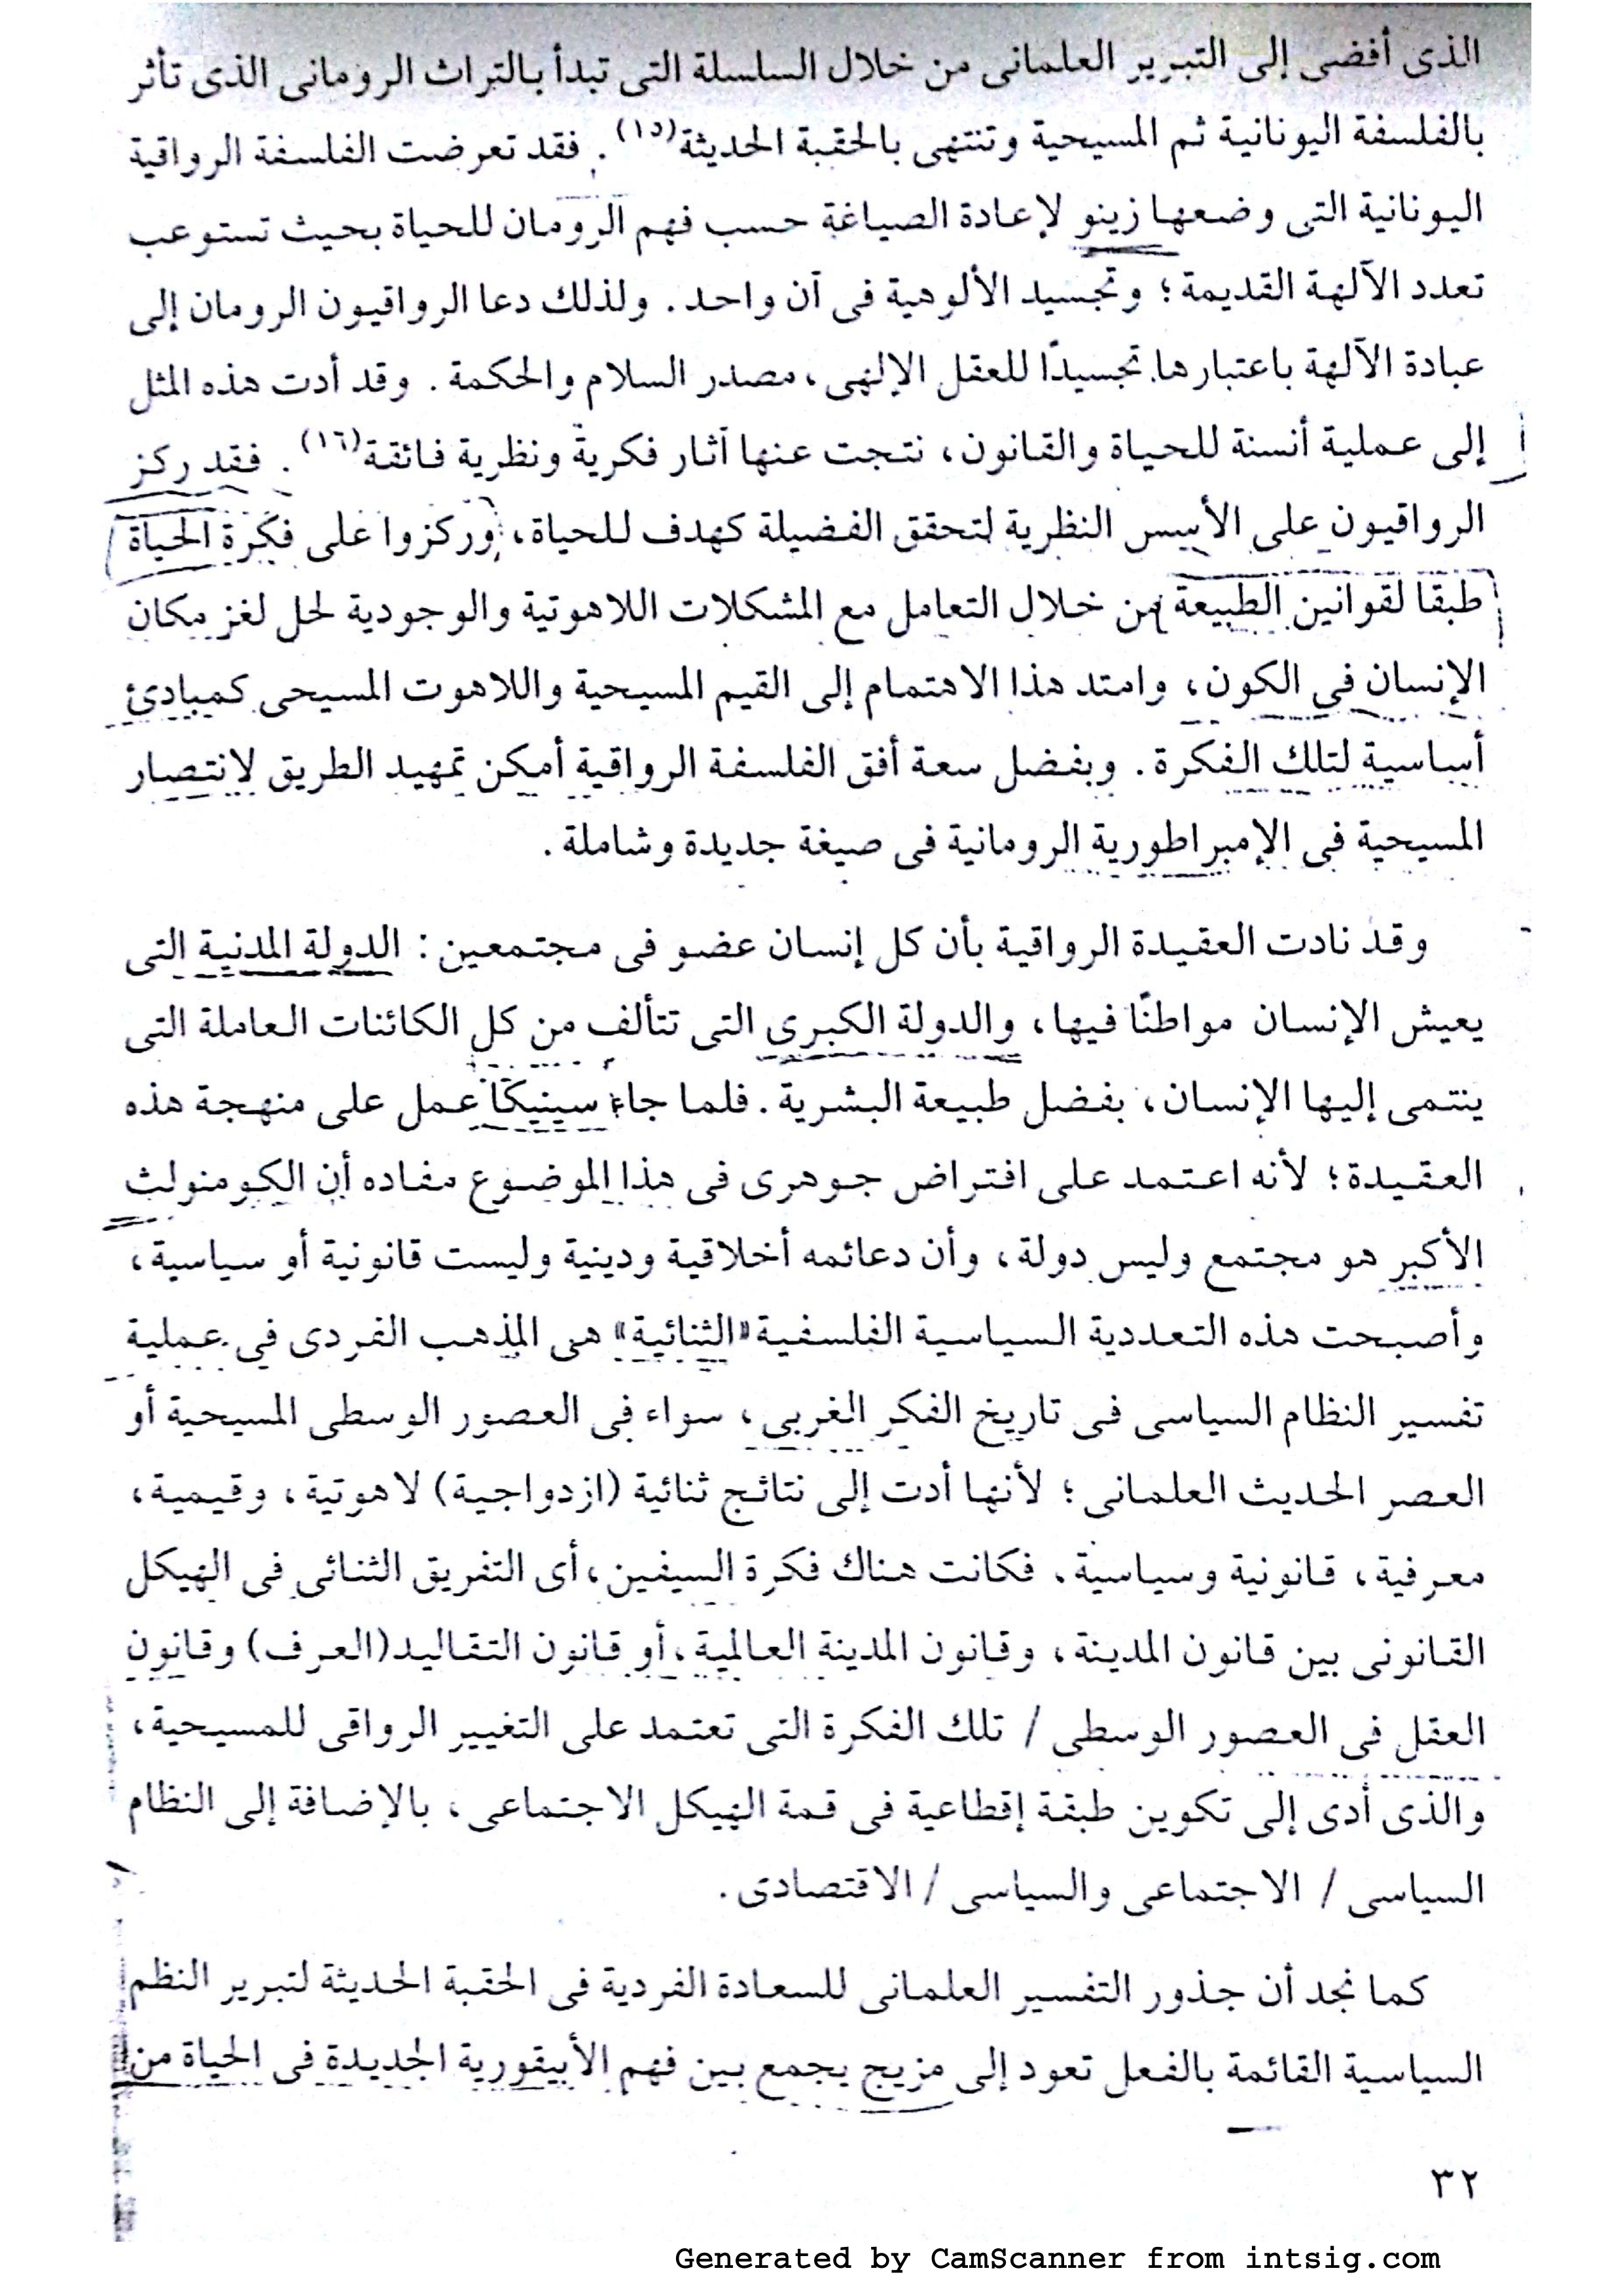 الذى أفضى إلى التبرير العلمانى من خلال السلسلة التى تبدأ بالتراث الرومانى الذى تأثر
بالفلسفة اليونانية ثم المسيحية وتنتهى بالحقبة الحديثة(١٥). فقد تعرضت الفلسفة الرواقية
اليونانية التى وضعها زينو لإعادة الصياغة حسب فهم الرومان للحياة بحيث تستوعب
تعدد الآلهة القديمة؛ وتجسيد الألوهية فى آن واحد. ولذلك دعا الرواقيون الرومان إلى
عبادة الآلهة باعتبارها تجسيدًا للعقل الإلهى، مصدر السلام والحكمة. وقد أدت هذه المثل
إلى عملية أنسنة للحياة والقانون، نتجت عنها آثار فكرية ونظرية فائقة(١٦). فقد ركز
الرواقيون على الأسس النظرية لتحقق الفضيلة كهدف للحياة، وركزوا على فكرة الحياة
طبقا لقوانين الطبيعة من خلال التعامل مع المشكلات اللاهوتية والوجودية لحل لغز مكان
الإنسان فى الكون، وامتد هذا الاهتمام إلى القيم المسيحية واللاهوت المسيحى كمبادئ
أساسية لتلك الفكرة. وبفضل سعة أفق الفلسفة الرواقية أمكن تمهيد الطريق لانتصار
المسيحية فى الإمبراطورية الرومانية فى صيغة جديدة وشاملة.
وقد نادت العقيدة الرواقية بأن كل إنسان عضو فى مجتمعين: الدولة المدنية التى
يعيش الإنسان مواطنًا فيها، والدولة الكبرى التى تتألف من كل الكائنات العاملة التى
ينتمى إليها الإنسان، بفضل طبيعة البشرية. فلما جاء سينيكا عمل على منهجة هذه
العقيدة؛ لأنه اعتمد على افتراض جوهرى فى هذا الموضوع مفاده أن الكومنولث
الأكبر هو مجتمع وليس دولة، وأن دعائمه أخلاقية ودينية وليست قانونية أو سياسية،
وأصبحت هذه التعددية السياسية الفلسفية «الثنائية» هى المذهب الفردى فى عملية
تفسير النظام السياسى فى تاريخ الفكر الغربى، سواء فى العصور الوسطى المسيحية أو
العصر الحديث العلمانى؛ لأنها أدت إلى نتائج ثنائية (ازدواجية) لاهوتية، وقيمية،
معرفية، قانونية وسياسية. فكانت هناك فكرة السيفين، أى التفريق الثنائى فى الهيكل
القانونى بين قانون المدينة، وقانون المدينة العالمية، أو قانون التقاليد (العرف) وقانون
العقل فى العصور الوسطى / تلك الفكرة التى تعتمد على التغيير الرواقى للمسيحية،
والذى أدى إلى تكوين طبقة إقطاعية فى قمة الهيكل الاجتماعى، بالإضافة إلى النظام
السياسى / الاجتماعى والسياسى / الاقتصادى.
كما نجد أن جذور التفسير العلمانى للسعادة الفردية فى الحقبة الحديثة لتبرير النظم
السياسية القائمة بالفعل تعود إلى مزيج يجمع بين فهم الأبيقورية الجديدة فى الحياة من
٣٢
Generated by CamScanner from intsig.com